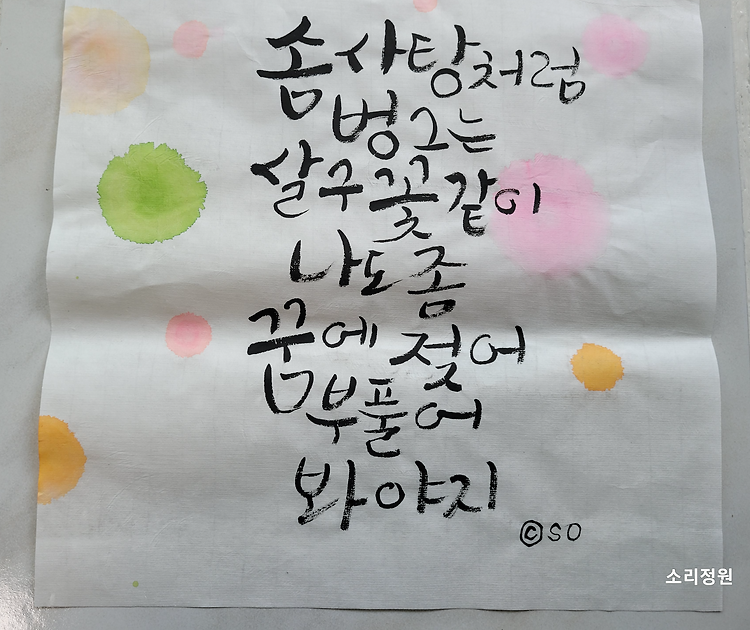 솜사탕처럼
벙그는
살구꽃같이
나도 좀
꿈에 젖어
부풀어
봐야지
©SO
소리정원